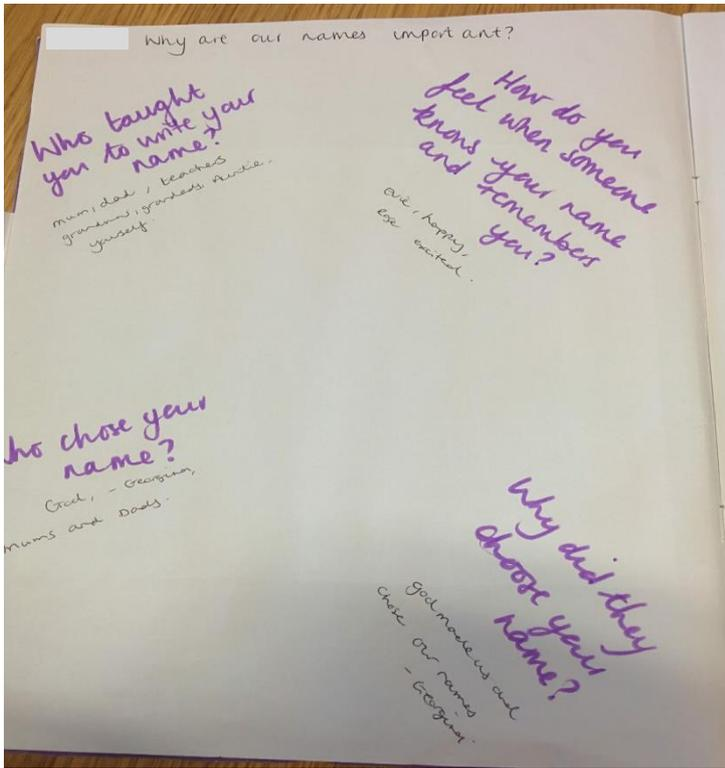 Why are our names important?
Who taught
you to write your
name?
mum, dad, teachers
grandma, grandads. Auntie.
yourself.
How do you
feel when someone
knows your name
and remembers
you?
evie, happy,
excited.
ho chose your
name?
God, - Georgina,
mums and Dads.
Why did they
choose your
name?
god made us and
chose our names
- Georgina.